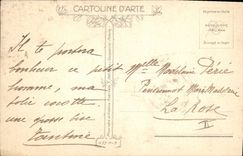 CARTOLINE D'ARTE
Il te portera
bonheur ce petit
homme, ma
jolie cocotte
une grosse bise
Tantine
Melle Madeleine Périé
Pensionnat
La Rose
II